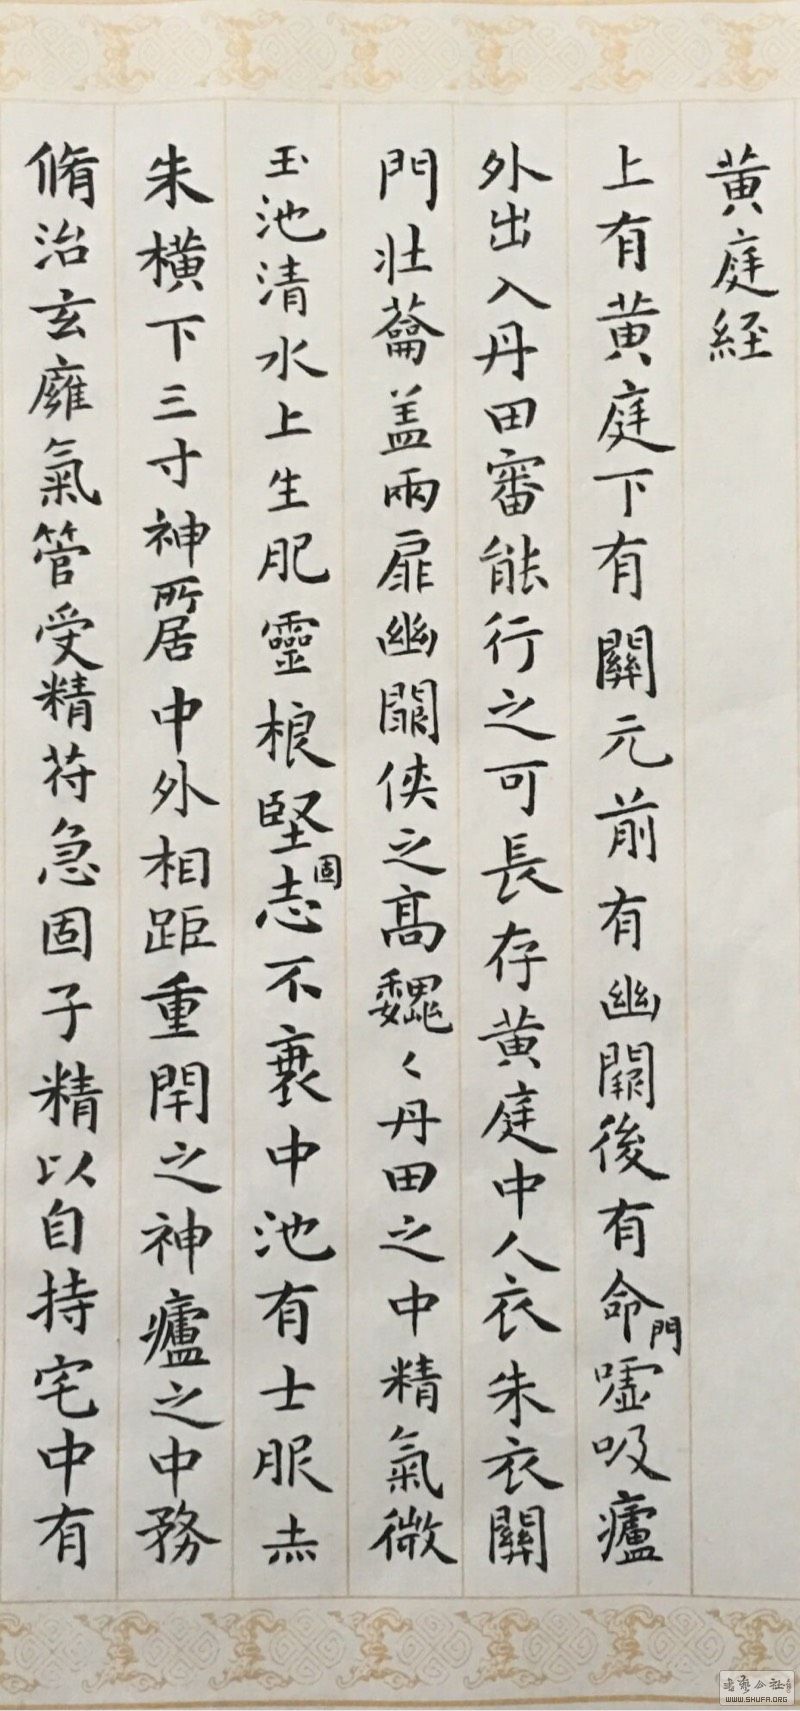 黄庭経
上有黄庭下有關元前有幽闕後有命門嘘吸廬
外出入丹田審能行之可長存黄庭中人衣朱衣關
門壯蘥盖兩扉幽闕侠之高魏〻丹田之中精氣微
玉池清水上生肥靈根堅固志不衰中池有士服赤
朱横下三寸神所居中外相距重閇之神廬之中務
脩治玄廱氣管受精苻急固子精以自持宅中有
WWW.SHUFA.ORG